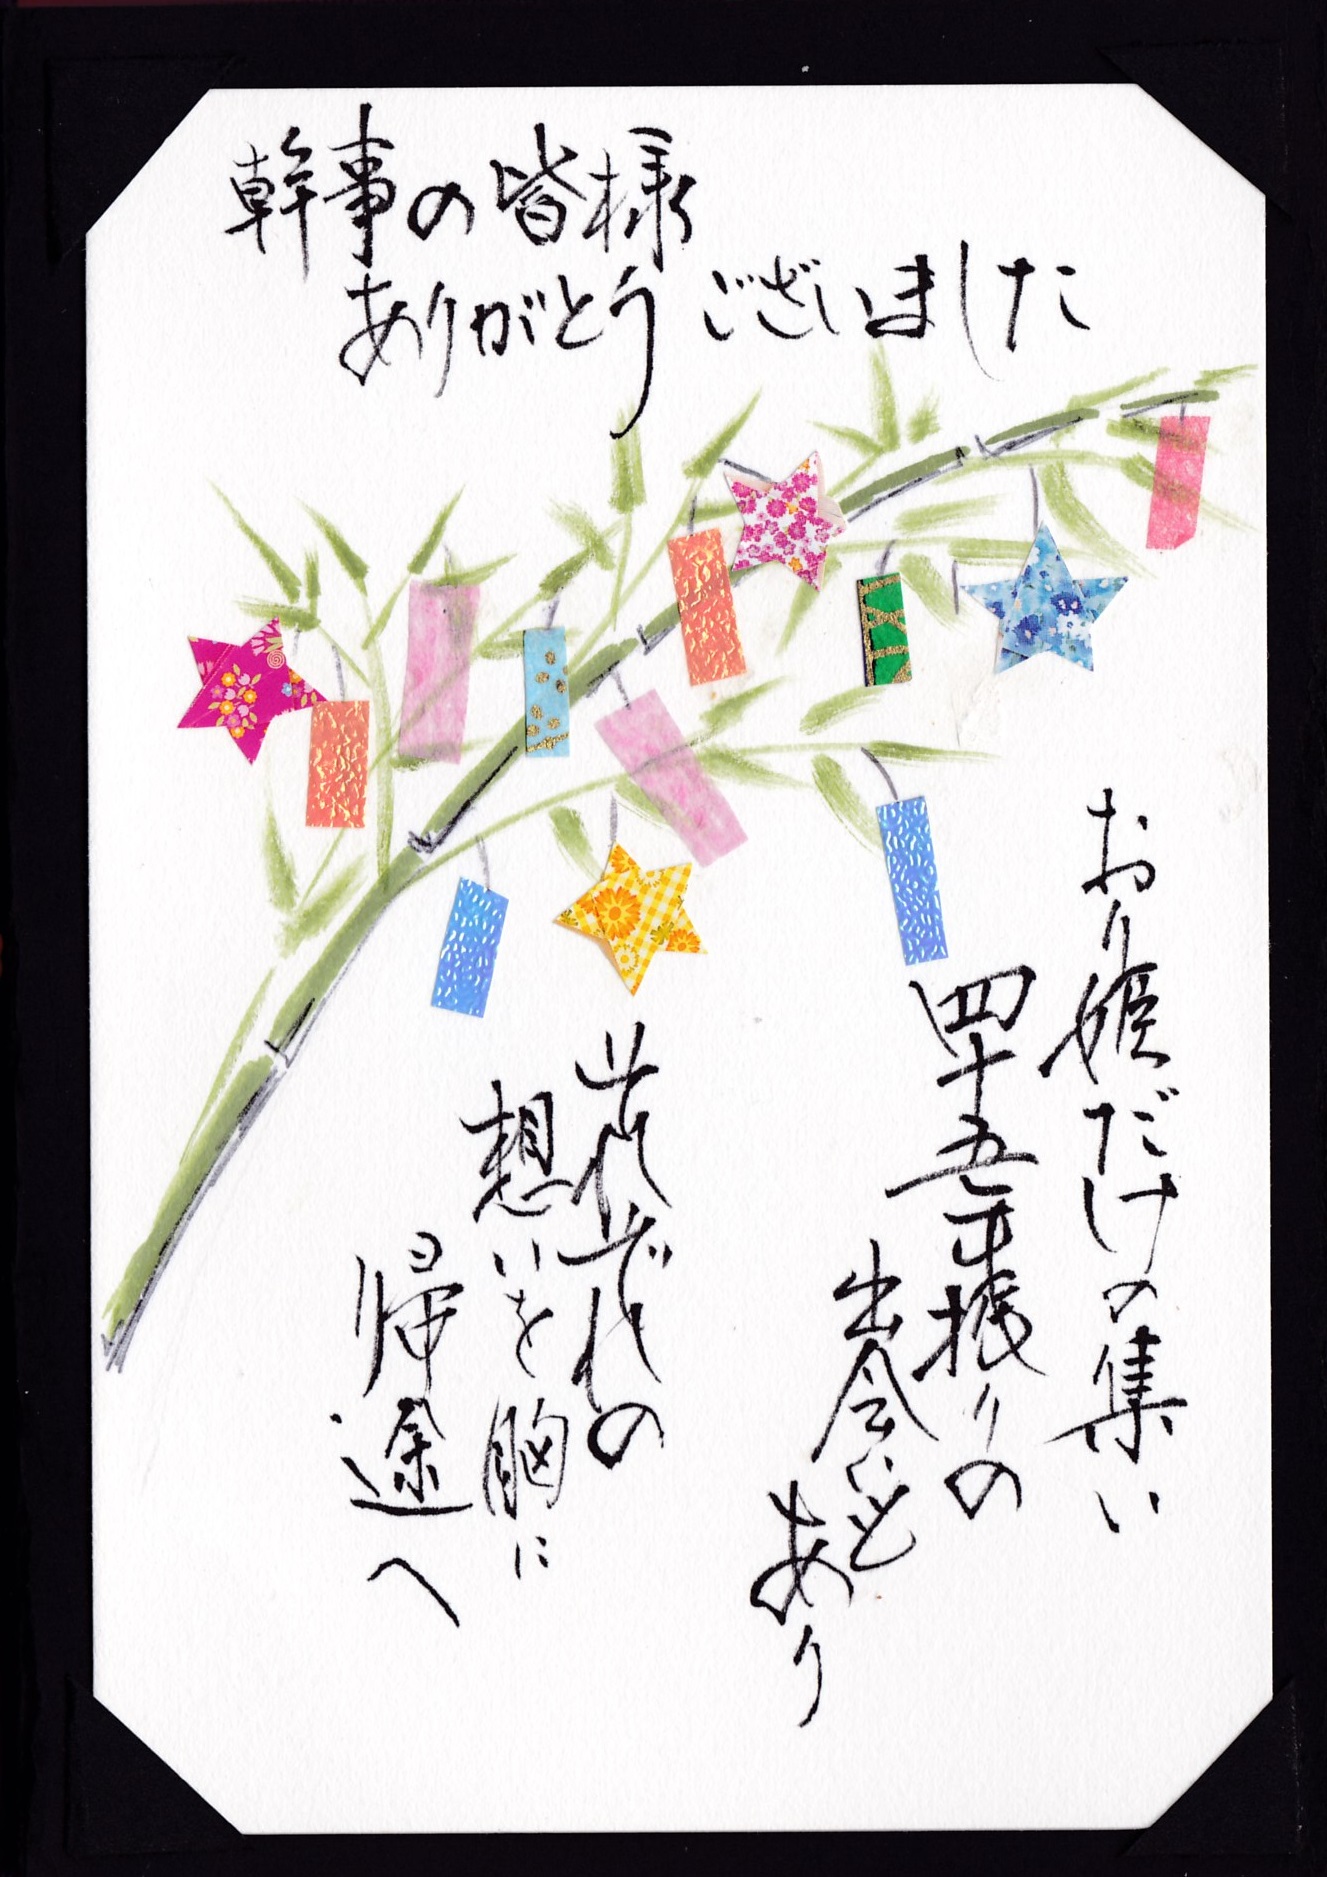 幹事の皆様
ありがとうございました
おり姫だけの集い
四十五年振りの
出会いも
あり
其れぞれの
想いを胸に
帰途へ